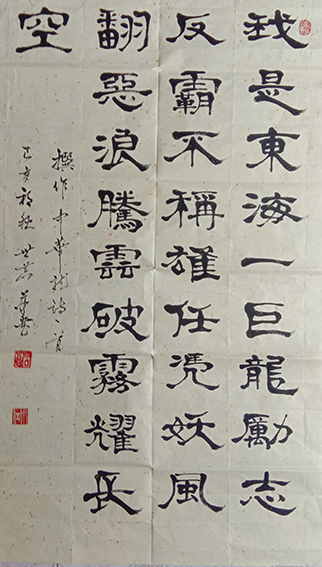 我是東海一巨龍勵志
反霸不稱雄任憑妖風
翻惡浪騰雲破霧耀長
空
撰作中華龍詩一首
己亥初秋世